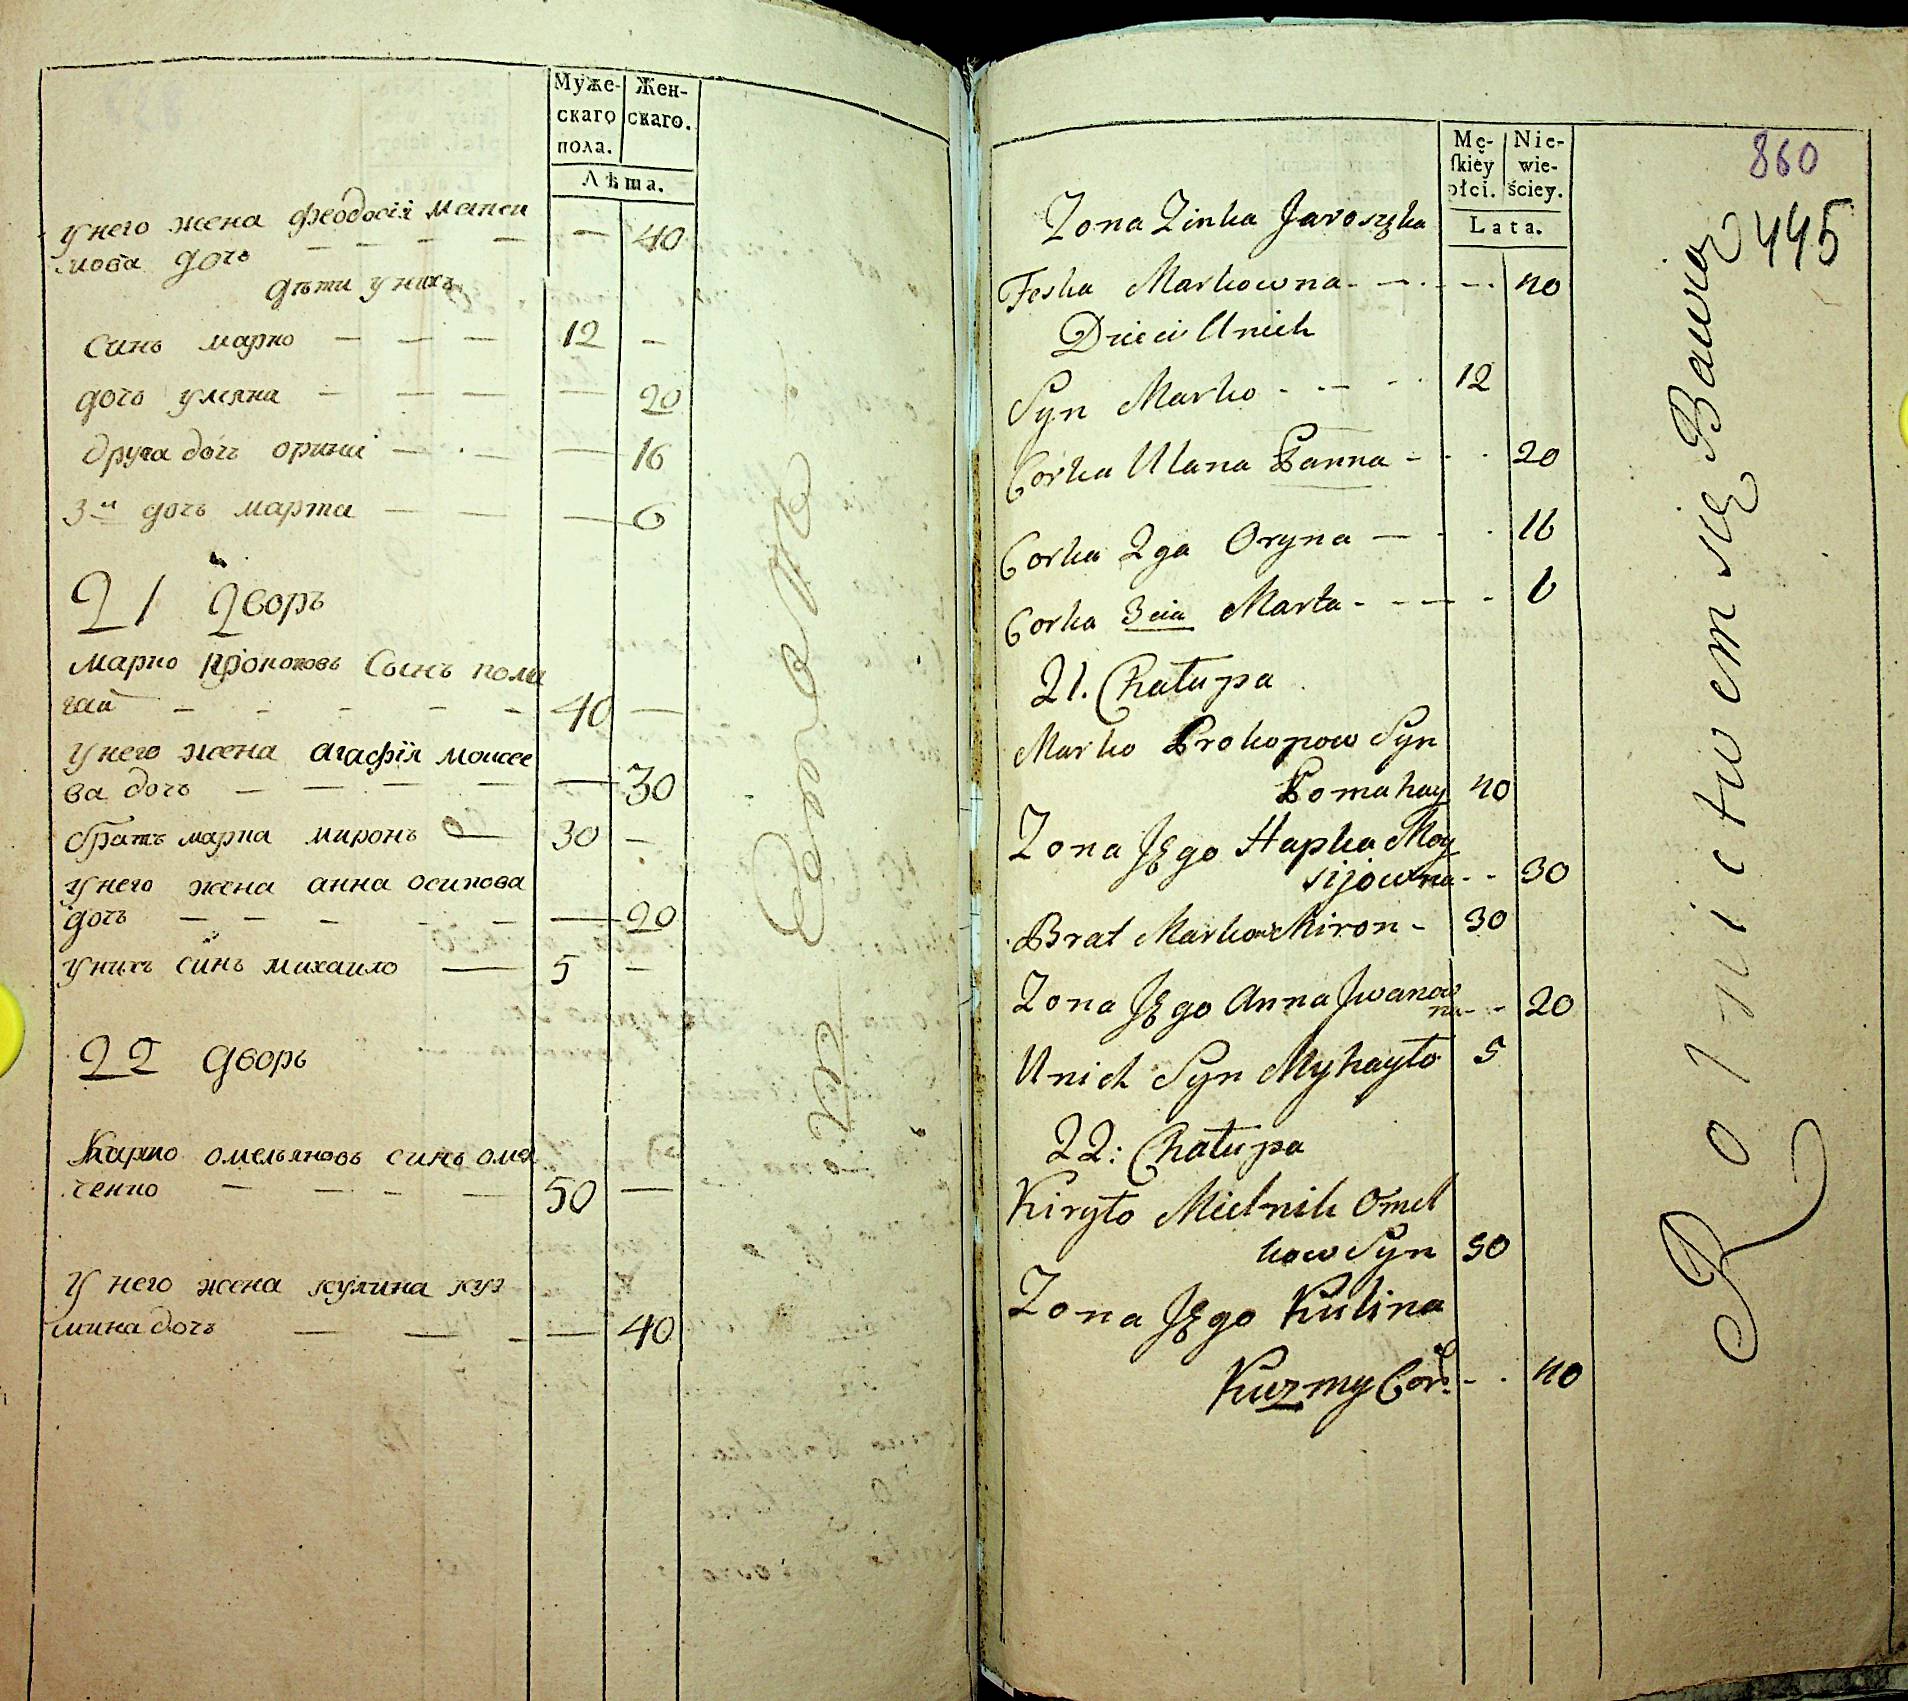 Муже-
скаго
пола.
Жен-
скаго.
Лѣта.
у него жена феодосія
мова дочь — — — — — 40
дѣти у нихъ
синъ марко — — — 12 —
дочь уляна — — — — 20
друга дочь орина — — — 16
3я дочь марта — — — 6
21 дворъ
марко прокоповъ сынъ пома
гай — — — — — 40 —
у него жена агафія моисее
ва дочь — — — — — 30
братъ марка миронъ — 30 —
у него жена анна осипова
дочь — — — — — — 20
у нихъ синъ михаило — 5 —
22 дворъ
Карпо омельяновъ синъ омел
ченко — — — — 50 —
у него жена кулина куз
мина дочь — — — — 40
Mę-
skiey
płci.
Nie-
wie-
ściey.
Lata.
860
445
Zona Zinka Jaroszka
Feska Markowna - — - - - 40
Dzieci Unich
Syn Marko - - — - - 12
Corka Ulana Panna - - - 20
Corka 2ga Oryna — - - 16
Corka 3cia Marta - - - — - 6
21. Chałupa
Marko Prokopow Syn
Pomahay 40
Zona Jego Hapka Moy
sijowna - - 30
Brat Markow Miron - 30
Zona Jego Anna Jwanow
na - - 20
Unich Syn Myhayło 5
22: Chałupa
Kiryło Mielnik Omel
kow Syn 50
Zona Jego Kulina
Kuzmy Cor: - - 40
Rolnictwem się Bawią